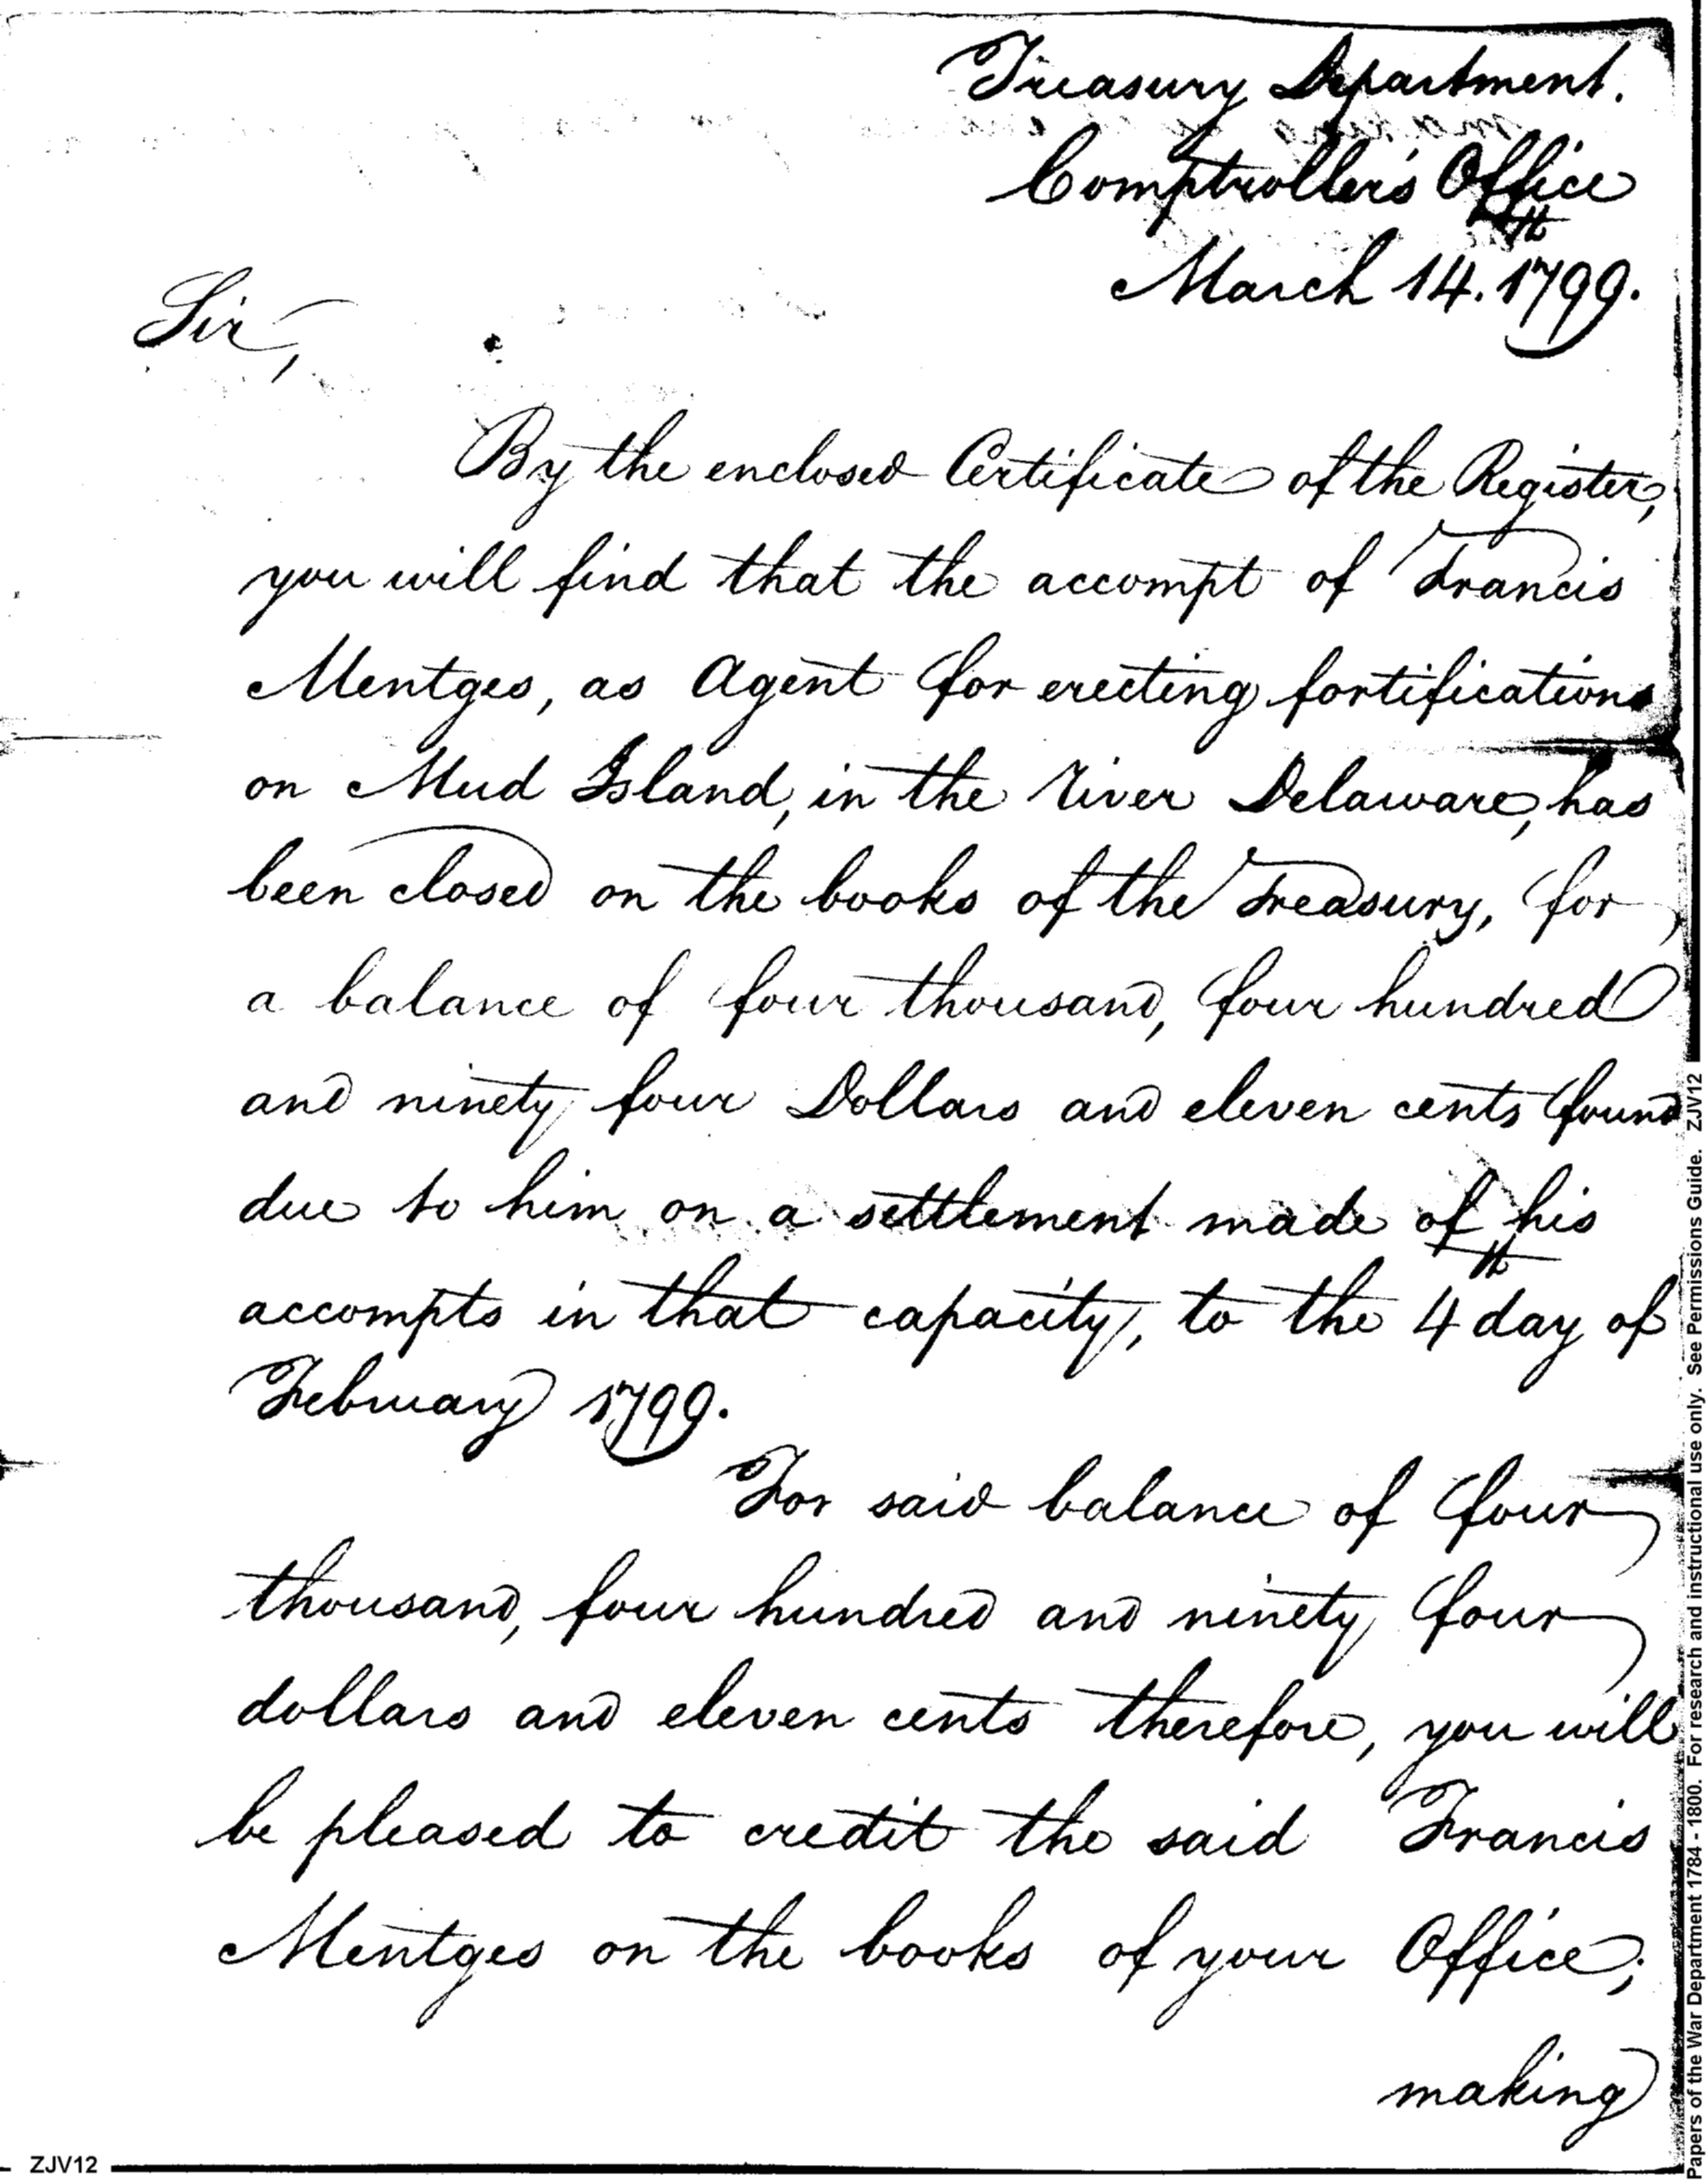 Treasury Department.
Comptroller's Office
March 14.th 1799.
Sir,
By the enclosed Certificate of the Register,
you will find that the accompt of Francis
Mentges, as Agent for erecting fortifications
on Mud Island, in the River Delaware, has
been closed on the books of the Treasury, for
a balance of four thousand, four hundred
and ninety four Dollars and eleven cents found
due to him on a settlement made of his
accompts in that capacity, to the 4th day of
February 1799.
For said balance of four
thousand, four hundred and ninety four
dollars and eleven cents therefore, you will
be pleased to credit the said Francis
Mentges on the books of your Office;
making
ZJV12
Papers of the War Department 1784 - 1800. For research and instructional use only. See Permissions Guide. ZJV12